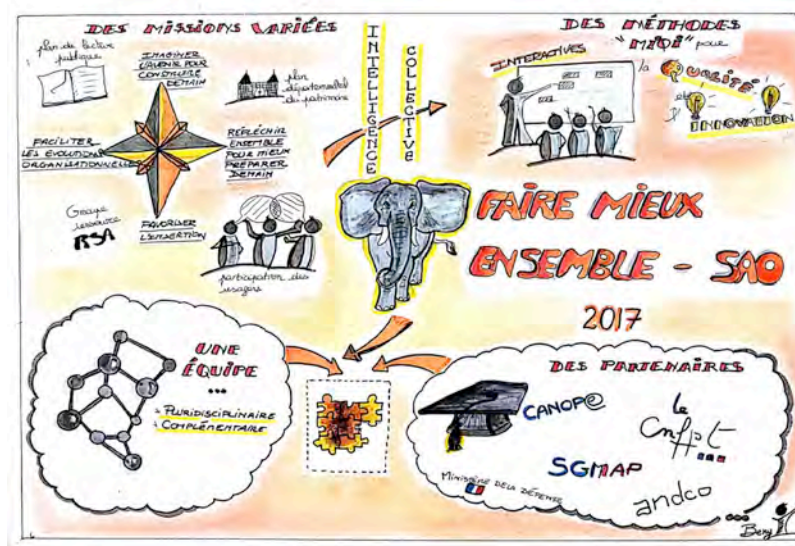 DES MISSIONS VARIÉES
plan de lecture
publique
IMAGINER
L'AVENIR POUR
CONSTRUIRE
DEMAIN
plan
départemental
du patrimoine
FACILITER
LES ÉVOLUTIONS
ORGANISATIONNELLES
RÉFLÉCHIR
ENSEMBLE
POUR MIEUX
PRÉPARER
DEMAIN
Groupe
ressource
RSA
FAVORISER
L'INSERTION
participation des
usagers
INTELLIGENCE
COLLECTIVE
DES MÉTHODES
"MIQI" pour
INTERACTIVES
la QUALITÉ
et
l'
INNOVATION
FAIRE MIEUX
ENSEMBLE - SAO
2017
UNE
ÉQUIPE
...
PLURIDISCIPLINAIRE
COMPLÉMENTAIRE
DES PARTENAIRES
CANOP@
le
cnfpt
SGMAP
MINISTÈRE DE LA DÉFENSE
andco
...